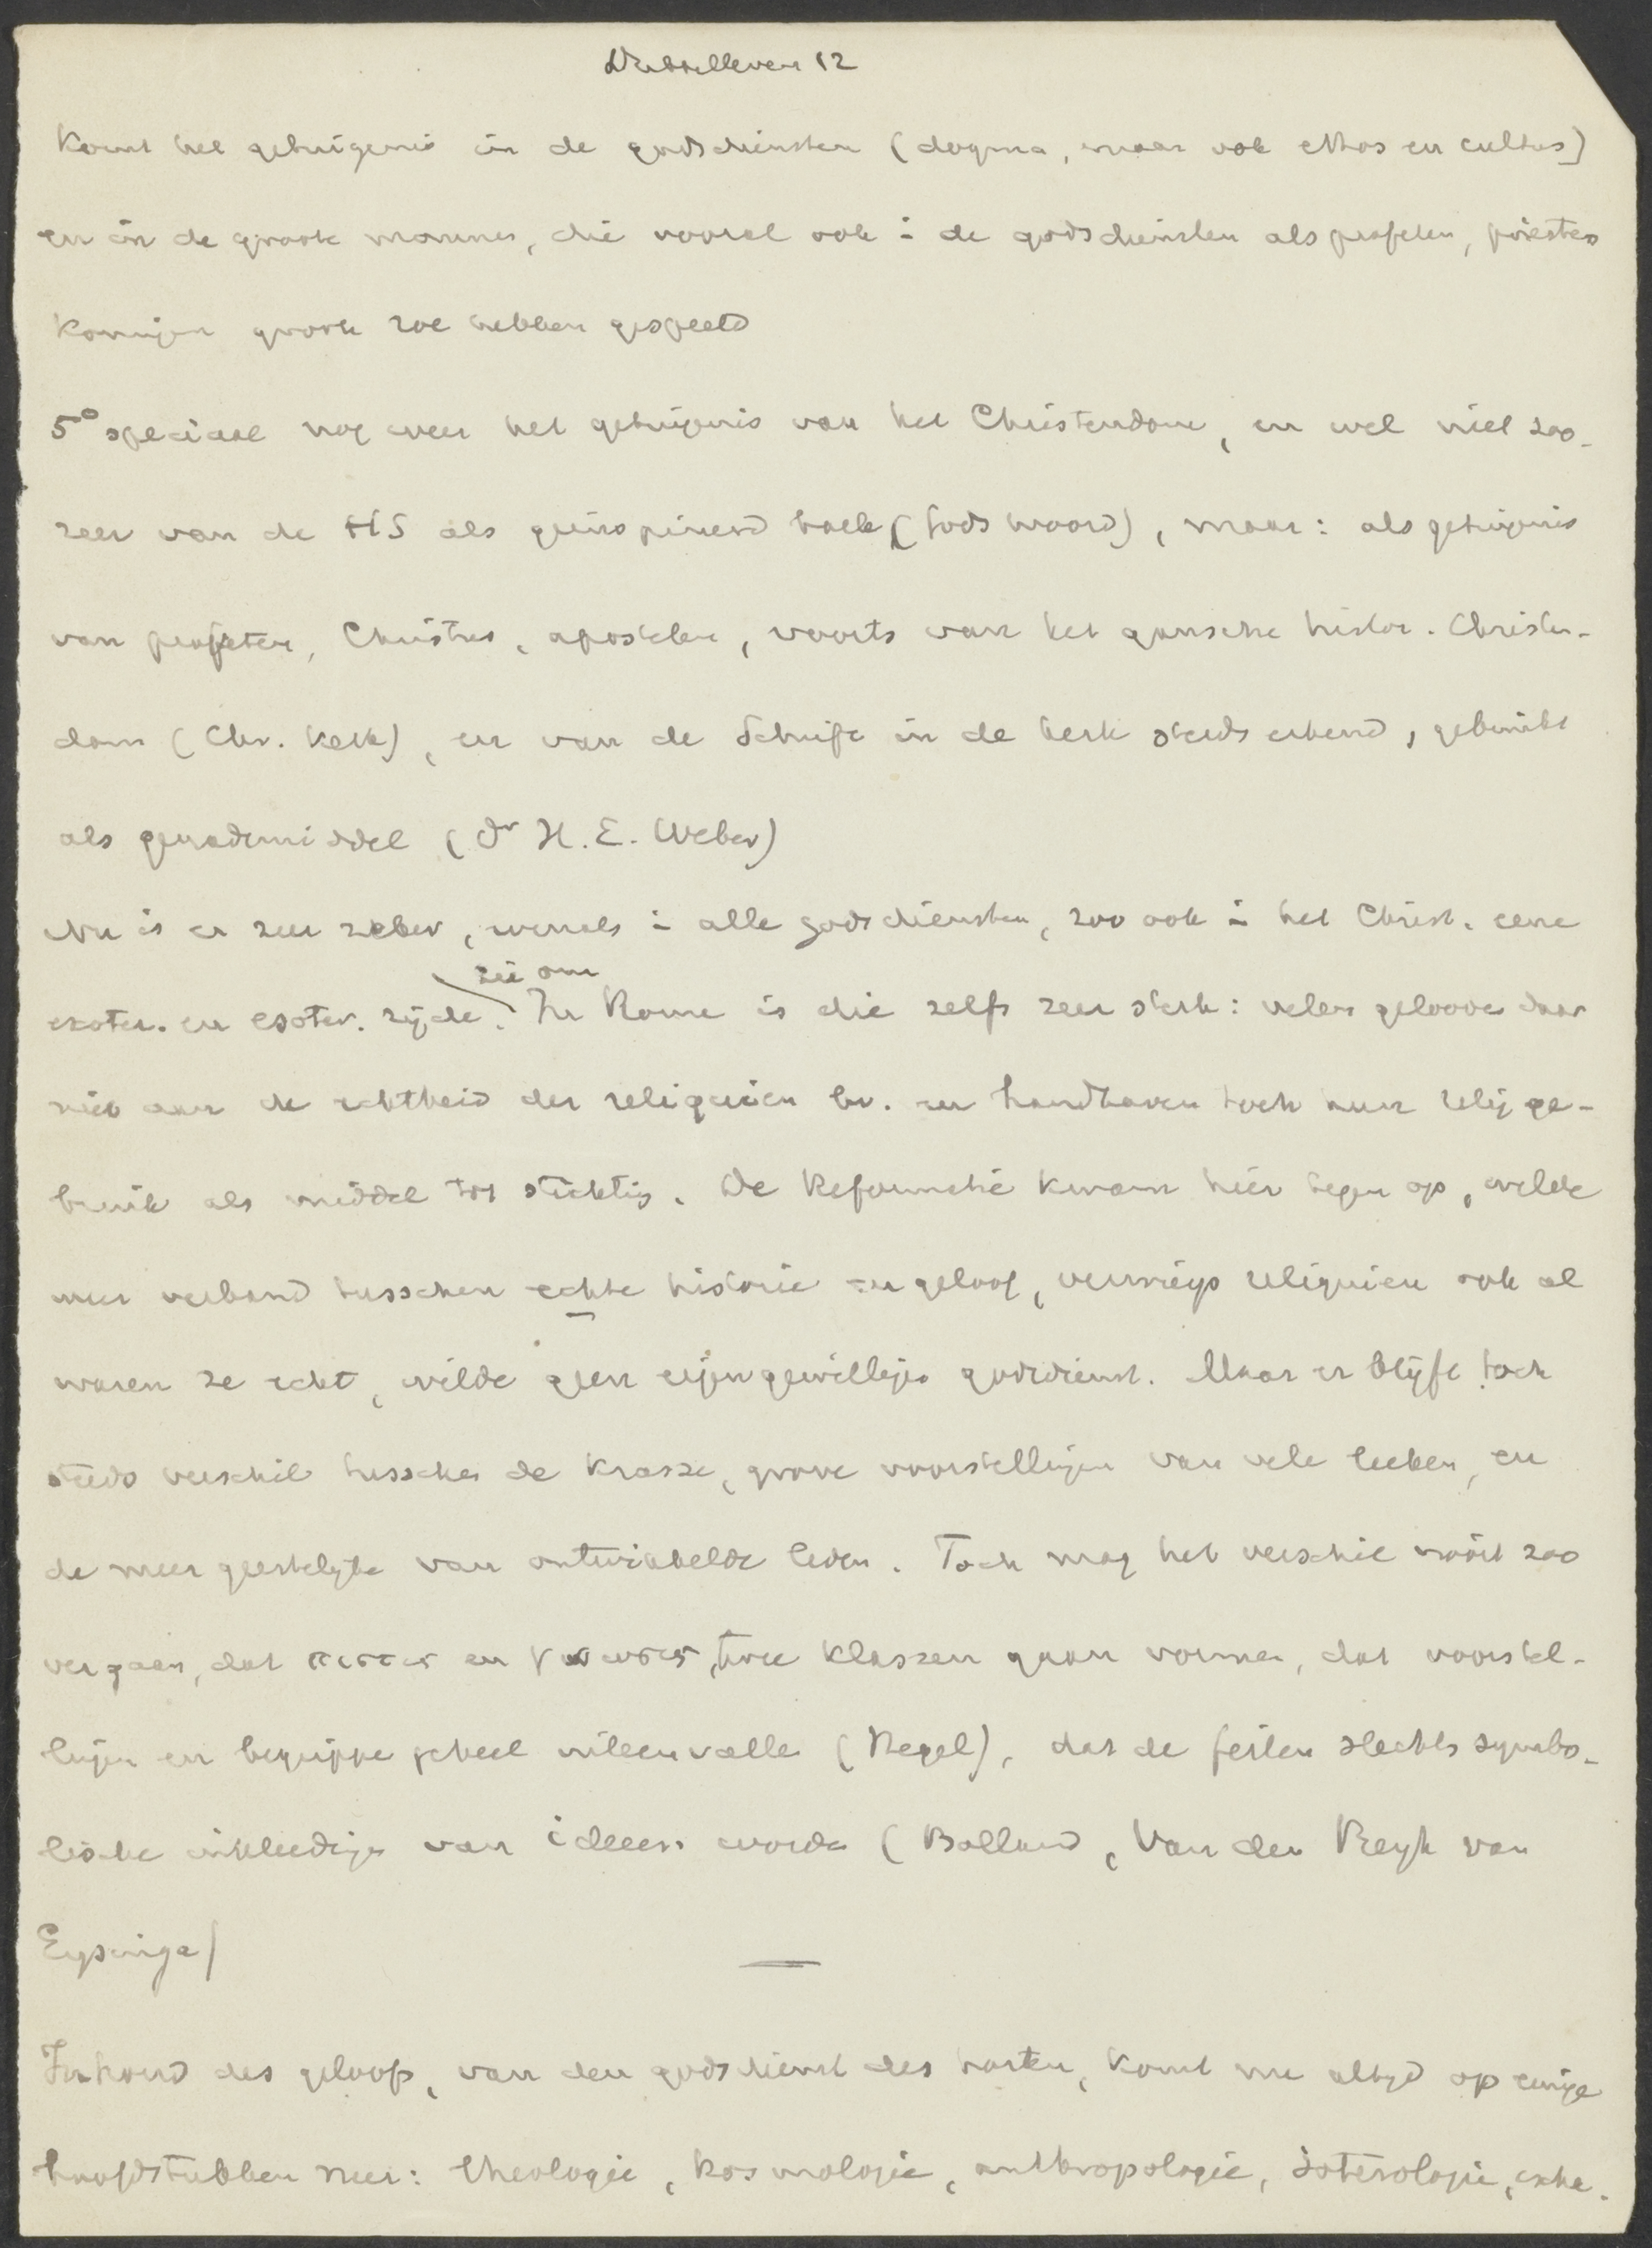 12
komt het getuigenis in de godsdiensten (dogma, maar ook ethos en cultus)
en in de groote mannen, die vooral ook i de godsdiensten als profeten, priesters
koningen groote rol hebben gespeeld
5° speciaal nog weer het getuigenis van het Christendom, en wel niet zoo-
zeer van de HS als geinspireerd boek (Gods woord), maar: als getuigenis
van profeten, Christus, apostelen, voorts van het gansche histor. Christen-
dom (Chr. Kerk), en van de Schrift in de kerk steeds erkend, gebruikt
als genademiddel (Dr H. E. Weber)
Nu is er zeer zeker, evenals i alle godsdiensten, zoo ook i het Christ. eene
zie om
exoter. en esoter. zijde. In Rome is die zelfs zeer sterk: velen gelooven daar
niet aan de echtheid der reliquieen bv. en handhaven toch hun relig ge-
bruik als middel tot stichtig. De Reformatie kwam hier tegen op, wilde
meer verband tusschen echte historie en geloof, verwierp reliquieen ook al
waren ze echt, wilde geen eigenwilligen godsdienst. Maar er blijft toch
steeds verschil tusschen de krasse, grove voorstellingen van vele leeken, en
de meer geestelijke van ontwikkelde leden. Toch mag het verschil nooit zoo
ver gaan, dat πιστις en γνωσις twee klassen gaan vormen, dat voorstel-
lingen en begrippen geheel uiteenvallen (Hegel), dat de feiten slechts symbo-
lische inkleedingen van ideeen worden (Bolland, Van den Bergh van
Eysinga)
Inhoud des geloofs, van den godsdienst des harten, komt nu altijd op eenige
hoofdstukken neer: theologie, kosmologie, anthropologie, soterologie, escha-